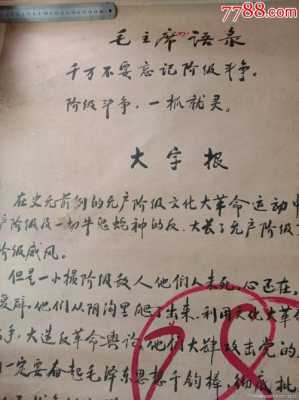 7788.com
毛主席语录
千万不要忘记阶级斗争。
阶级斗争,一抓就灵。
大字报
在史无前例的无产阶级文化大革命运动中
产阶级及一切牛鬼蛇神的反、大长了无产阶级
阶级威风。
但是一小撮阶级敌人他们人未死,心还在。
复辟。他们从阴沟里爬了出来、利用文化大革命
手、大造反革命舆论、他们大肆攻击党的
一定要奋起毛泽东思想千钧棒,彻底批
78